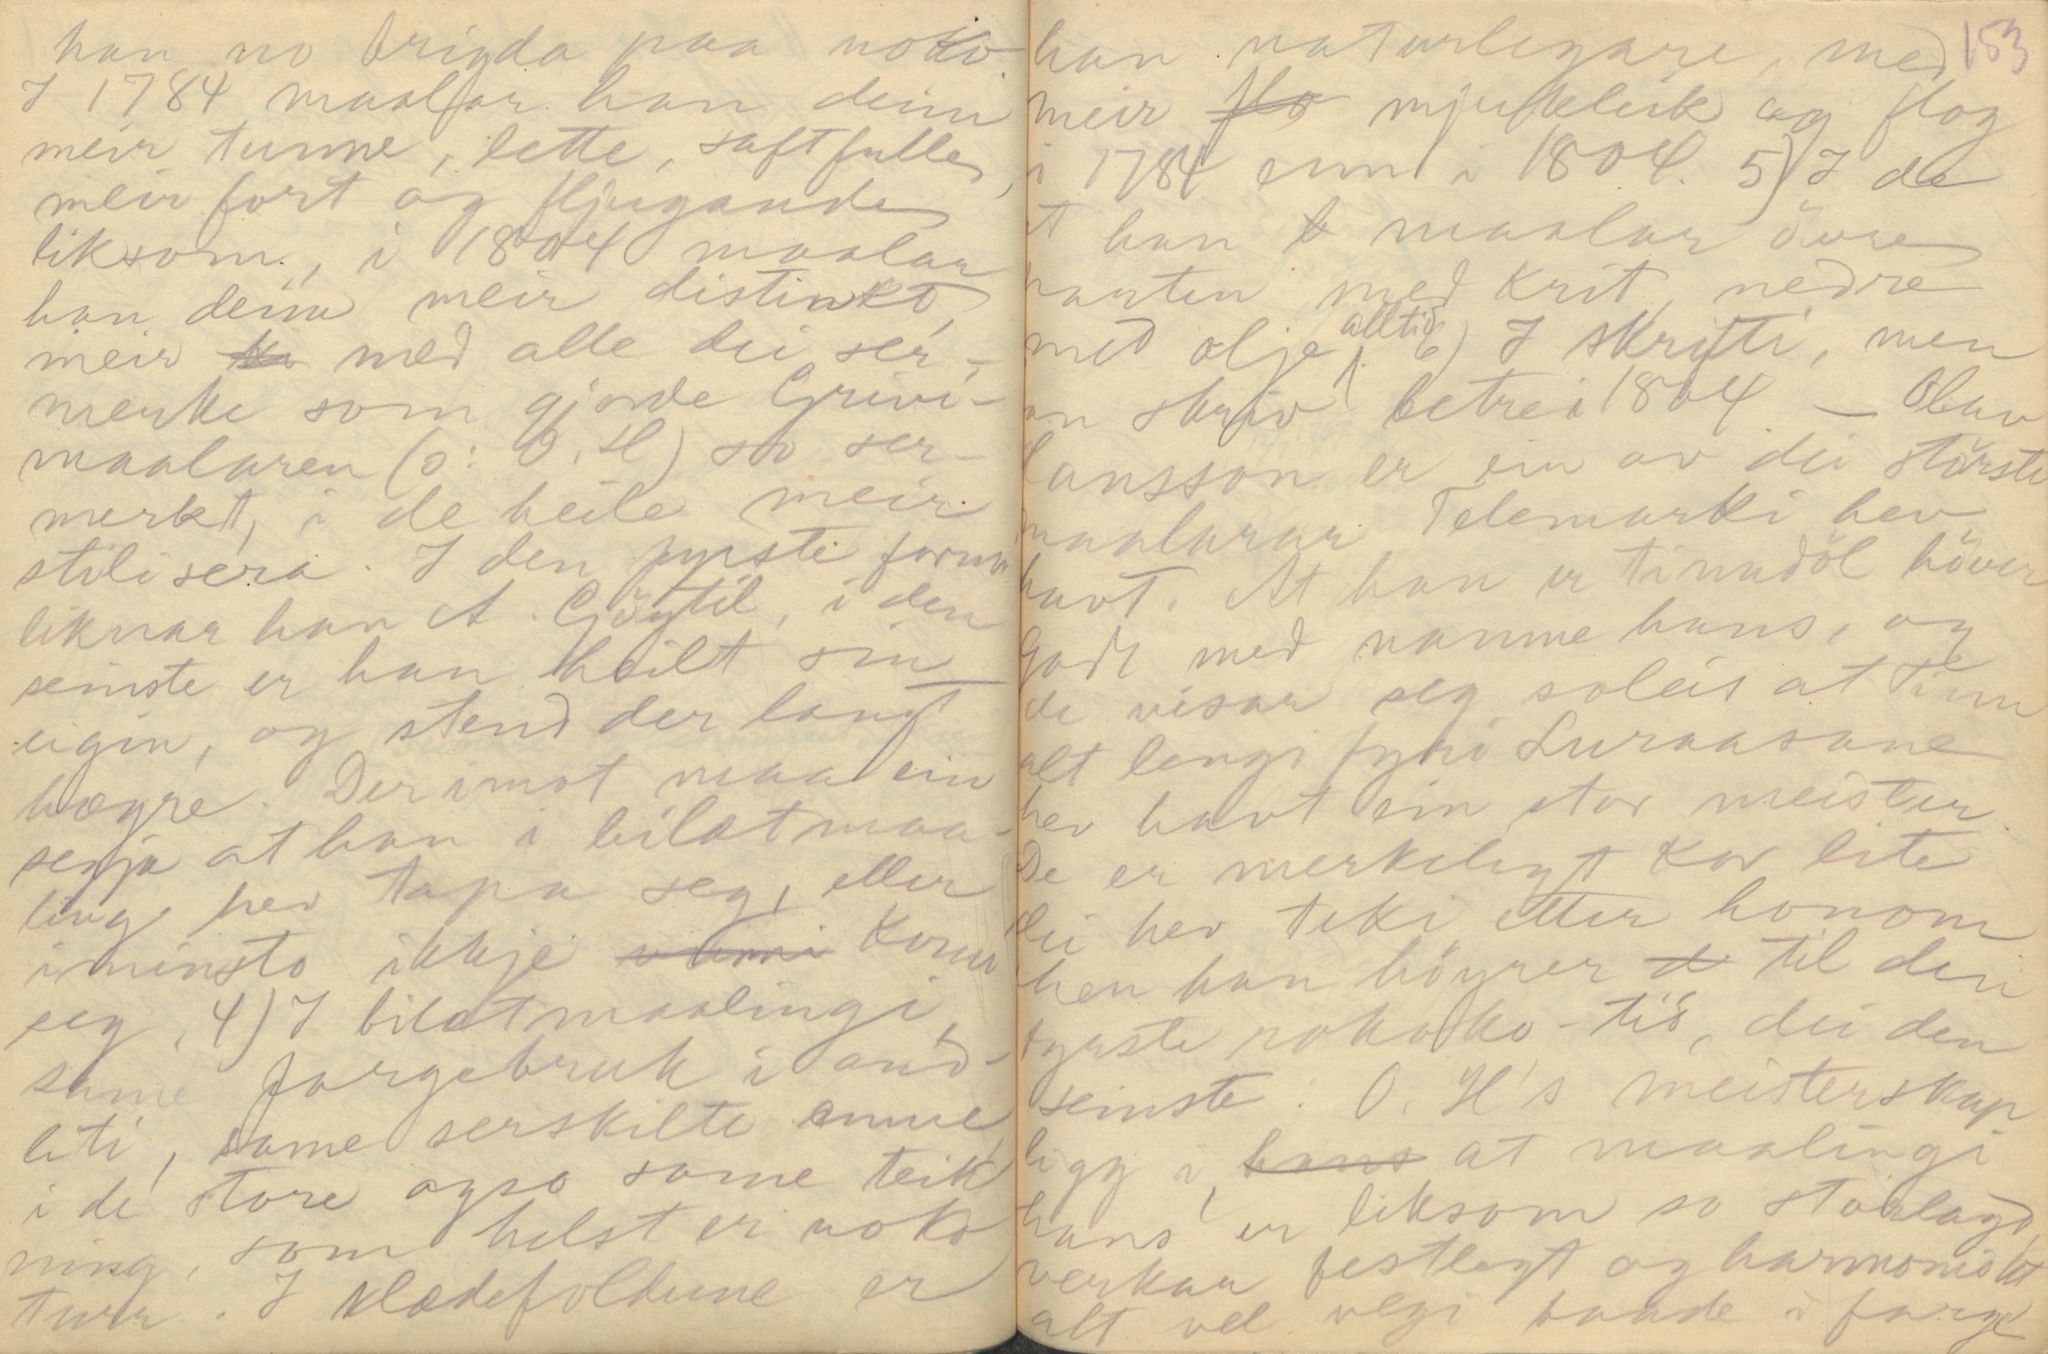 han no brigda paa noko.
I 1784 maalar han deim
meir tunne, lette, saftfulle,
meir fort og fljugande
liksom, i 1804 maalar
han deim meir distinkt,
meir med alle dei ser-
merke som gjorde Grivi-
maalaren (ɔ: O. H) so ser-
merkt, i de heile meir
stilisera. I den fyrste formi
liknar han A. Gøytil, i den
seinste er han heilt sin
eigin, og stend der langt
høgre. Derimot maa ein
segja at han i bilætmaa-
ling hev tapa seg, eller
iminsto ikkje komi
seg. 4) I bilætmaalingi,
same fargebruk i and-
liti, same serskilte emne,
i de store ogso same teik
ning, som helst er noko
turr. I klædefoldune er
153
han naturlegare, med
meir flo mjukleik og flog
i 1784 enn i 1804. 5) I de
at han maalar övre
parten med krit, nedre
med olje alltid 6) I skrifti, men
an skriv betre i 1804 — Olav
Hansson er ein av dei störste
maalarar Telemarki hev
havt. At han er tinndöl höver
godt med namne hans, og
de visar seg soleis at Tinn
alt lengi fyri Luraasane
hev havt ein stor meister.
De er merkelegt kor lite
dei hev teki etter honom
Men han höyrer til den
fyrste rokoko-tid, dei den
seinste. O. H's meisterskap
ligg i, hans at maalingi
hans er liksom so storlagd,
verkar festlegt og harmoniskt
alt vel vegi baade i farge